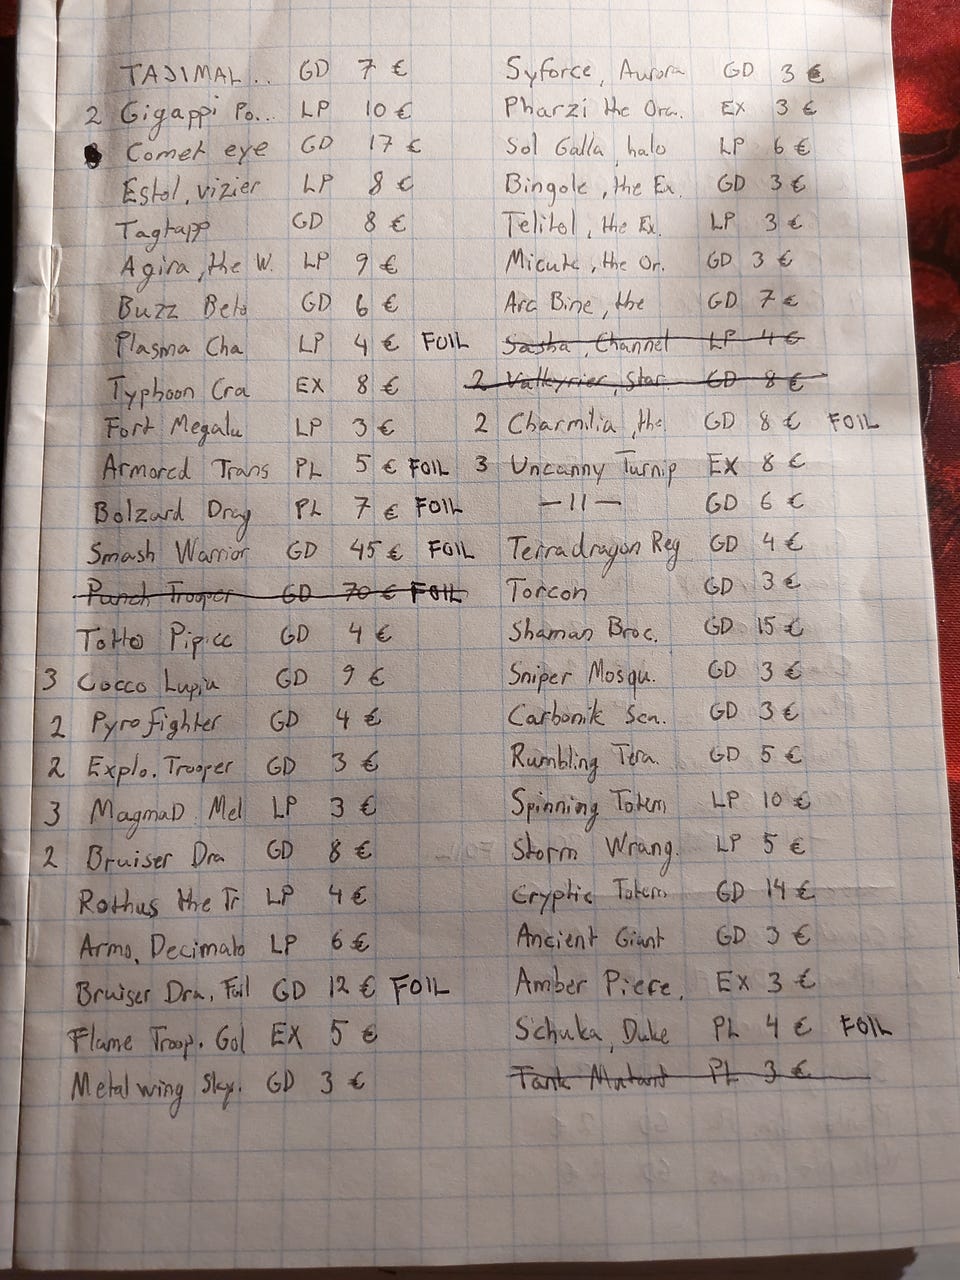 TAJIMAL.. GD 7 €
2 Gigappi Po... LP 10 €
Comet eye GD 17 €
Estol, vizier LP 8 €
Tagtapp GD 8 €
Agira, the W. LP 9 €
Buzz Beto GD 6 €
Plasma Cha LP 4 € FOIL
Typhoon Cra EX 8 €
Fort Megalu LP 3 €
Armored Trans PL 5 € FOIL
Bolzard Drag PL 7 € FOIL
Smash Warrior GD 45 € FOIL
Punch Trooper GD 70 € FOIL
Totto Pipicc GD 4 €
3 Cocco Lupia GD 9 €
2 Pyrofighter GD 4 €
2 Explo. Trooper GD 3 €
3 MagmaD Mel LP 3 €
2 Bruiser Dra GD 8 €
Rothus the Tr LP 4 €
Armo, Decimato LP 6 €
Bruiser Dra, Foil GD 12 € FOIL
Flame Troop. Gol EX 5 €
Metalwing Sky. GD 3 €
Syforce, Aurora GD 3 €
Pharzi the Ora. EX 3 €
Sol Galla, halo LP 6 €
Bingole, the Ex. GD 3 €
Telitol, the Ex. LP 3 €
Micute, the Or. GD 3 €
Arc Bine, the GD 7 €
Sasha, Channel LP 4 €
2 Valkyrier, Star. GD 8 €
2 Charmilia, the. GD 8 € FOIL
3 Uncanny Turnip EX 8 €
—11— GD 6 €
Terradragon Reg GD 4 €
Torcon GD 3 €
Shaman Broc. GD 15 €
Sniper Mosqu. GD 3 €
Carbonik Sca. GD 3 €
Rumbling Tera. GD 5 €
Spinning Totem LP 10 €
Storm Wrang. LP 5 €
Cryptic Totem GD 14 €
Ancient Giant GD 3 €
Amber Pierce, EX 3 €
Schuka, Duke PL 4 € FOIL
Tank Mutant PL 3 €